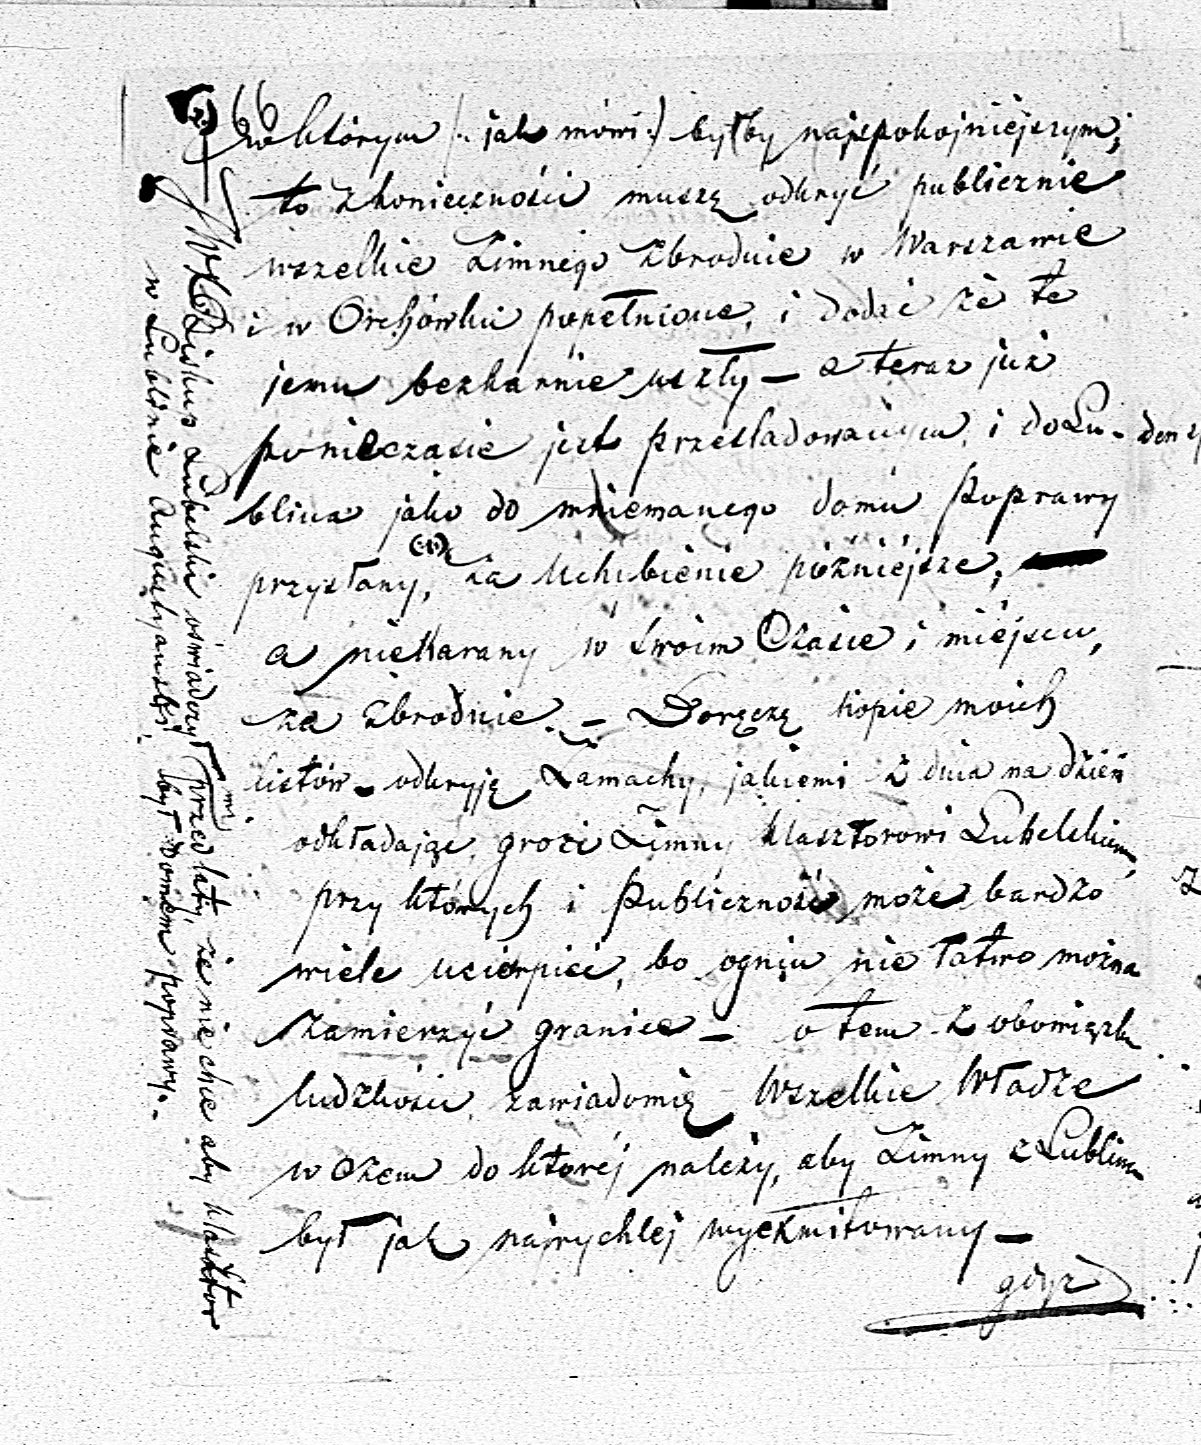 66
w którym (: jak mówi :) byłby najspokojniejszym;
to z konieczności muszę odkryć publicznie
wszelkie Zimnego zbrodnie w Warszawie
i w Orchówku popełnione, i dodać że te
jemu bezkarnie uszły — a teraz już
poniewczasie jest prześladowanym, i do Lu-
blina jako do mniemanego domu Poprawy
przysłany, za uchybienie późniejsze,
a niekarany w swoim Czasie i miejscu,
za zbrodnie. — Doręczę kopie moich
listów — odkryję Zamachy, jakiemi z dnia na dzień
odkładając, grozi Zimny klasztorowi Lubelskiemu,
przy których i Publiczność może bardzo
wiele ucierpieć, bo ogniu nie łatwo można
zamierzyć granice — o tem z obowiązku
ludzkości zawiadomię Wszelkie Władze
w czem do której należy, aby Zimny z Lublina
był jak najrychlej wyexmitowany —
gdyż
Biskup Lubelski oświadczył przed laty że nie chce aby klasztor
w Lublinie Augustyański był domem poprawy. -